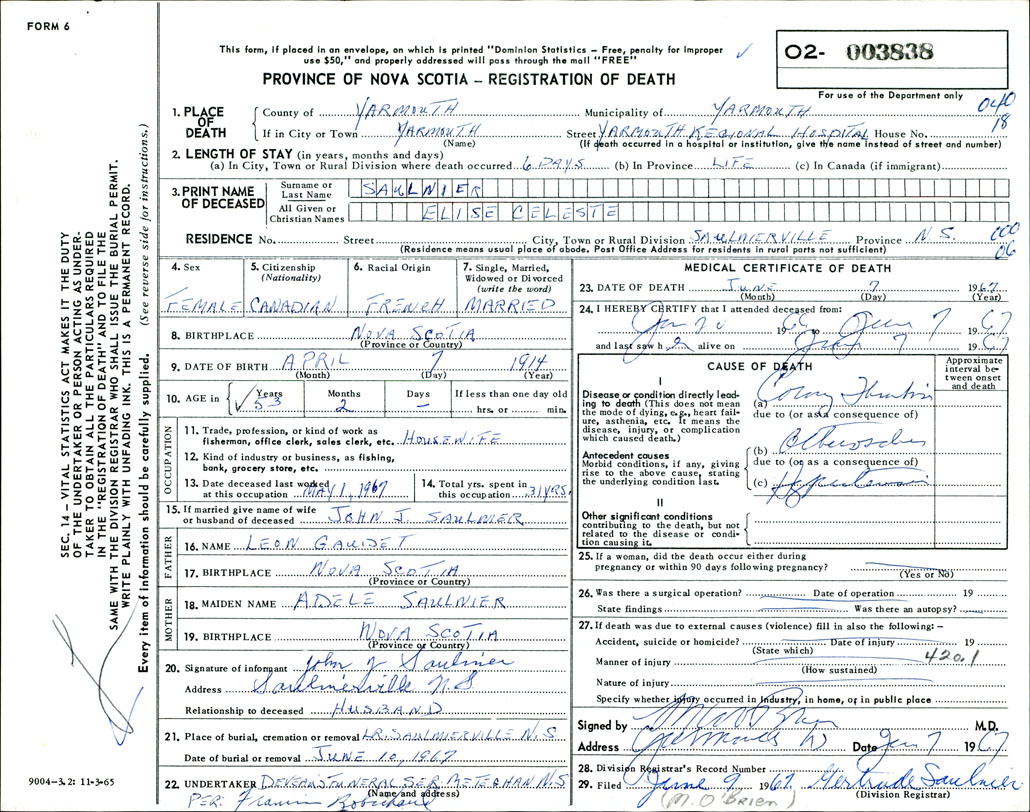 FORM 6
This form, if placed in an envelope, on which is printed "Dominion Statistics – Free, penalty for improper
use $50," and properly addressed will pass through the mail "FREE"
O2- 003838
PROVINCE OF NOVA SCOTIA – REGISTRATION OF DEATH
For use of the Department only
040
18
1. PLACE OF DEATH
County of YARMOUTH Municipality of YARMOUTH
If in City or Town YARMOUTH Street YARMOUTH REGIONAL HOSPITAL House No.
(Name) (If death occurred in a hospital or institution, give the name instead of street and number)
2. LENGTH OF STAY (in years, months and days)
(a) In City, Town or Rural Division where death occurred 6 DAYS (b) In Province LIFE (c) In Canada (if immigrant)
3. PRINT NAME OF DECEASED
Surname or Last Name SAULNIER
All Given or Christian Names ELISE CELESTE
RESIDENCE No. Street City, Town or Rural Division SAULNIERVILLE Province N.S. 000
06
(Residence means usual place of abode. Post Office Address for residents in rural parts not sufficient)
4. Sex FEMALE
5. Citizenship (Nationality) CANADIAN
6. Racial Origin FRENCH
7. Single, Married, Widowed or Divorced (write the word) MARRIED
8. BIRTHPLACE NOVA SCOTIA
(Province or Country)
9. DATE OF BIRTH APRIL 7 1914
(Month) (Day) (Year)
10. AGE in Years 53 Months 2 Days – If less than one day old hrs. or min.
OCCUPATION
11. Trade, profession, or kind of work as fisherman, office clerk, sales clerk, etc. HOUSEWIFE
12. Kind of industry or business, as fishing, bank, grocery store, etc.
13. Date deceased last worked at this occupation MAY 1, 1967
14. Total yrs. spent in this occupation 31 YRS.
15. If married give name of wife or husband of deceased JOHN J. SAULNIER
FATHER
16. NAME LEON GAUDET
17. BIRTHPLACE NOVA SCOTIA
(Province or Country)
MOTHER
18. MAIDEN NAME ADELE SAULNIER
19. BIRTHPLACE NOVA SCOTIA
(Province or Country)
20. Signature of informant John J Saulnier
Address Saulnierville N.S
Relationship to deceased HUSBAND
21. Place of burial, cremation or removal LR. SAULNIERVILLE N.S.
Date of burial or removal JUNE 10, 1967
22. UNDERTAKER DEVEAU FUNERAL SER. METEGHAN N.S
(Name and address)
PER:
MEDICAL CERTIFICATE OF DEATH
23. DATE OF DEATH JUNE 7 1967
(Month) (Day) (Year)
24. I HEREBY CERTIFY that I attended deceased from:
1966 to June 7 1967
and last saw her alive on June 7 1967
CAUSE OF DEATH
Approximate interval between onset and death
I
Disease or condition directly leading to death (This does not mean the mode of dying, e.g., heart failure, asthenia, etc. It means the disease, injury, or complication which caused death.)
(a)
due to (or as a consequence of)
Antecedent causes
Morbid conditions, if any, giving rise to the above cause, stating the underlying condition last.
(b)
due to (or as a consequence of)
(c)
II
Other significant conditions
contributing to the death, but not related to the disease or condition causing it.
25. If a woman, did the death occur either during
pregnancy or within 90 days following pregnancy?
(Yes or No)
26. Was there a surgical operation? Date of operation 19
State findings Was there an autopsy?
27. If death was due to external causes (violence) fill in also the following: –
Accident, suicide or homicide? Date of injury 19
(State which) 420.1
Manner of injury
(How sustained)
Nature of injury
Specify whether injury occurred in Industry, in home, or in public place
Signed by M.D.
Address Yarmouth Date Jun 7 1967
28. Division Registrar's Record Number
29. Filed June 9 1967 Gertrude Saulnier
(M. O'Brien) (Division Registrar)
SEC. 14 – VITAL STATISTICS ACT MAKES IT THE DUTY
OF THE UNDERTAKER OR PERSON ACTING AS UNDER-
TAKER TO OBTAIN ALL THE PARTICULARS REQUIRED
IN THE "REGISTRATION OF DEATH" AND TO FILE THE
SAME WITH THE DIVISION REGISTRAR WHO SHALL ISSUE THE BURIAL PERMIT.
WRITE PLAINLY WITH UNFADING INK. THIS IS A PERMANENT RECORD.
Every item of information should be carefully supplied. (See reverse side for instructions.)
9004-3.2: 11-3-65